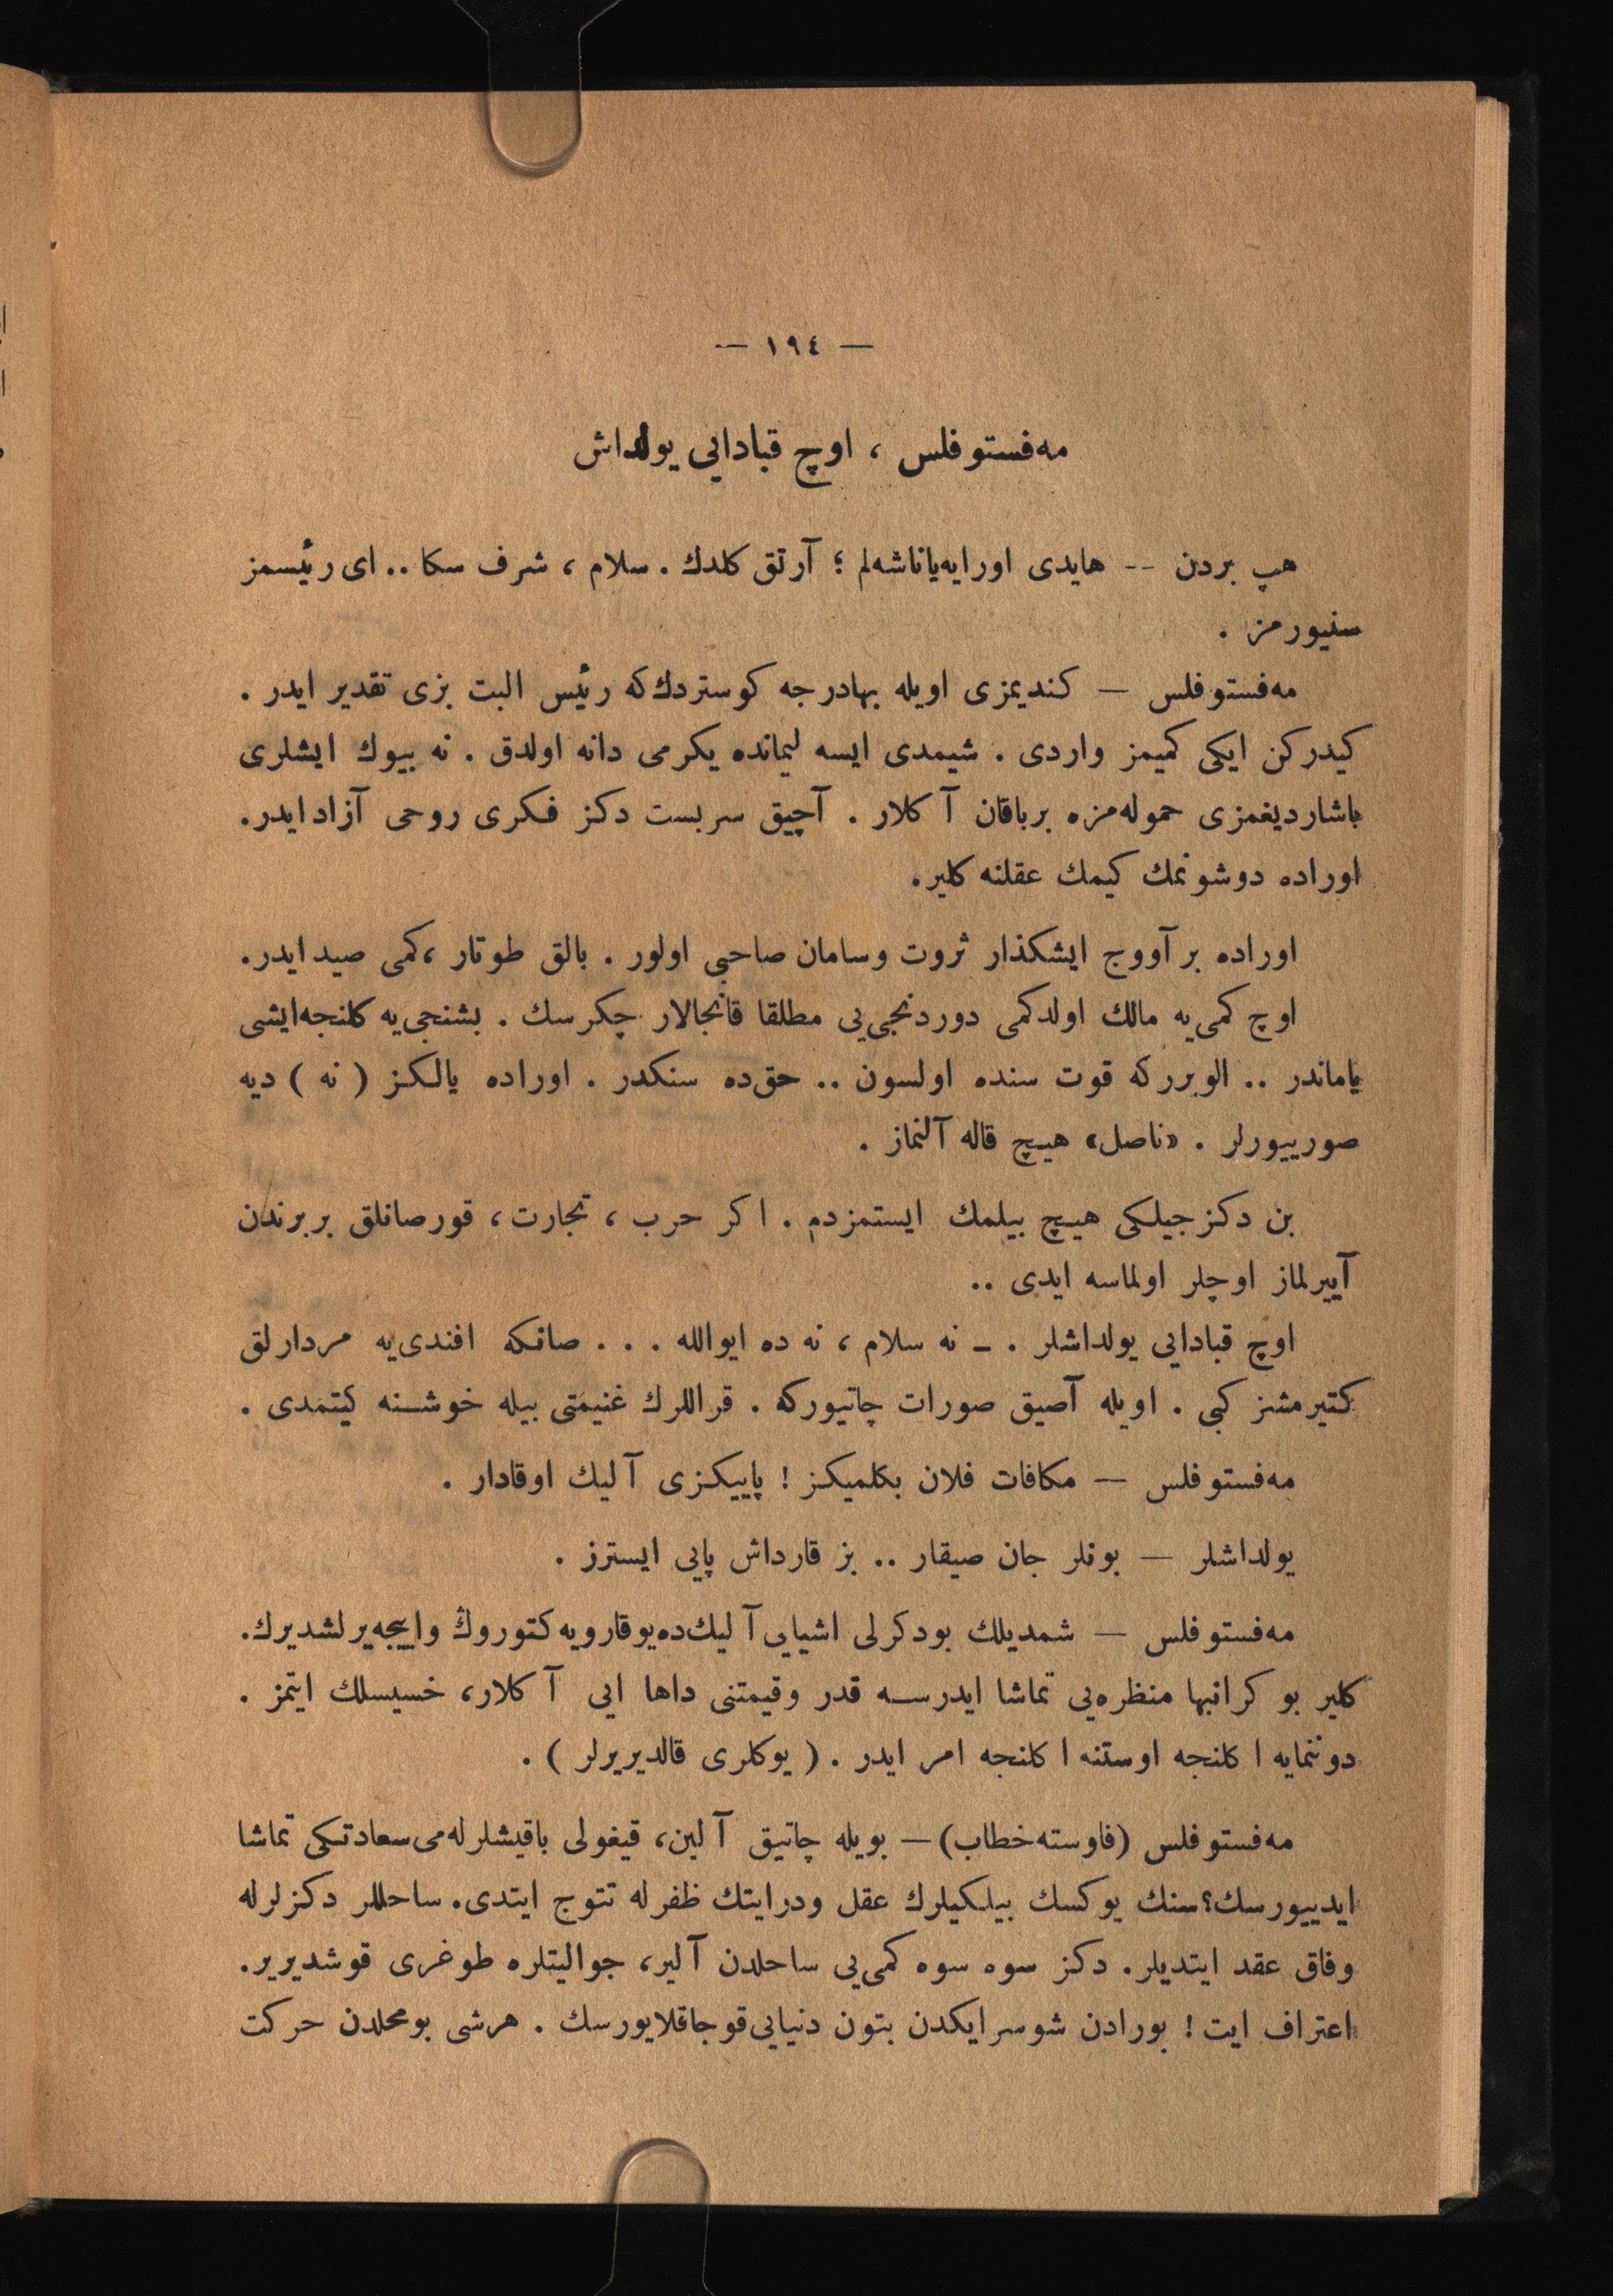 — ١٩٤ —
مه‌فستوفلس ، اوچ قبادایی یولداش
هپ بردن -- هایدی اورایه‌یاناشه‌لم ؛ آرتق كلدك . سلام ، شرف سكا .. ای رئیسمز
سنیورمز .
مه‌فستوفلس — كندیمزی اویله بهادرجه كوستردك‌كه رئیس البت بزی تقدیر ایدر .
كیدركن ایكی كمیمز واردی . شیمدی ایسه لیمانده یكرمی دانه اولدق . نه بیوك ایشلری
باشاردیغمزی حموله‌مزه برباقان آكلار . آچیق سربست دكز فكری روحی آزاد ایدر.
اوراده دوشونمك كیمك عقلنه كلیر.
اوراده بر آووج ایشكذار ثروت وسامان صاحبی اولور . بالق طوتار ،كمی صید ایدر.
اوچ كمی‌یه مالك اولدكمی دوردنجی‌یی مطلقا قانجالار چكرسك . بشنجی‌یه كلنجه‌ایشی
یاماندر .. الویرركه قوت سنده اولسون .. حق‌ده سنكدر . اوراده یالكز ( نه ) دیه
صورییورلر . «ناصل» هیچ قاله آلنماز .
بن دكزجیلكی هیچ بیلمك ایستمزدم . اكر حرب ، تجارت ، قورصانلق بربرندن
آییرلماز اوچلر اولماسه ایدی ..
اوچ قبادایی یولداشلر . ـ نه سلام ، نه ده ایوالله . . . صانكه افندی‌یه مردارلق
كتیرمشز كبی . اویله آصیق صورات چاتیوركه . قراللرك غنیمتی بیله خوشـنه كیتمدی .
مه‌فستوفلس — مكافات فلان بكلمیكز ! پاییكزی آلیك اوقادار .
یولداشلر — بونلر جان صیقار .. بز قارداش پایی ایسترز .
مه‌فستوفلس — شمدیلك بودكرلی اشیایی آلیك‌ده‌یوقارویه‌كتوروڭ وایجه‌یرلشدیرك.
كلیر بو كرانبها منظره‌یی تماشا ایدرسـه قدر وقیمتنی داها ایی آكلار، خسیسلك ایتمز .
دوننمایه اكلنجه اوستنه اكلنجه امر ایدر . ( یوكلری قالدیریرلر ) .
مه‌فستوفلس (فاوسته‌خطاب)— بویله چاتیق آلین، قیغولی باقیشلرله‌می‌سعادتكی تماشا
ایدییورسك؟سنك یوكسك بیلكیلرك عقل ودرایتك ظفرله تتوج ایتدی. ساحللر دكزلرله
وفاق عقد ایتدیلر. دكز سوه سوه كمی‌یی ساحلدن آلیر، جوالیتلره طوغری قوشدیریر.
اعتراف ایت ! بورادن شوسرایكدن بتون دنیایی‌قوجاقلایورسك . هرشی بومحلدن حركت